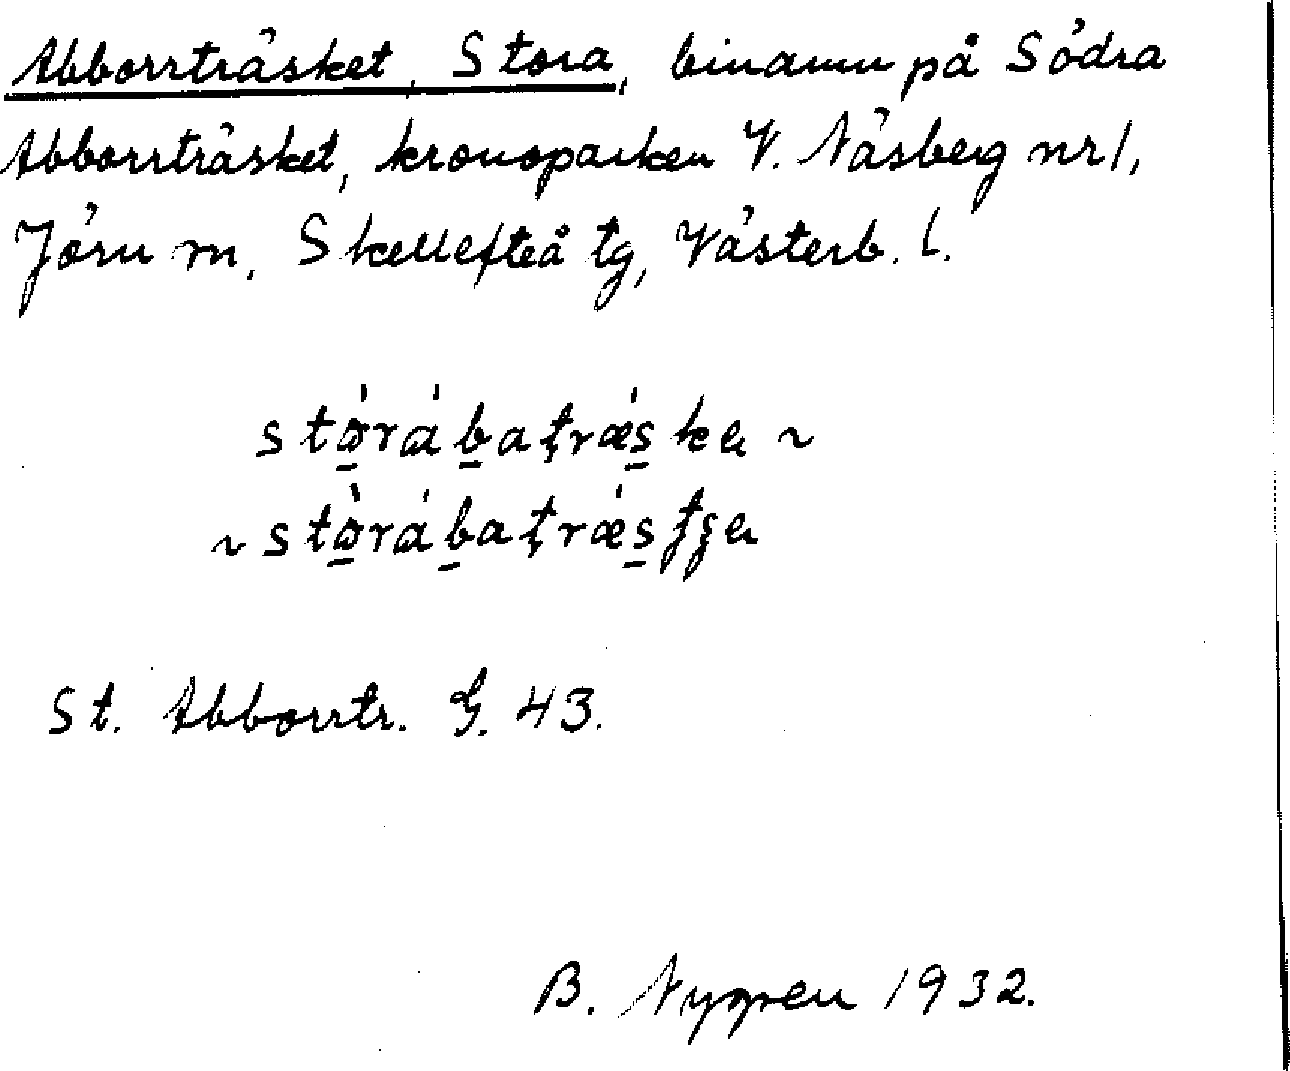 Abborrträsket, Stora, binamn på Södra
Abborrträsket, kronoparken V. Näsberg nr 1,
Jörn sn, Skellefteå tg, Västerb. l.
stǿ̱ráḇaţrǽs̱ka ~
~ stǿ̱ráḇaţrǽs̱tʂa
St. Abborrtr. G. 43.
B. Nygren 1932.